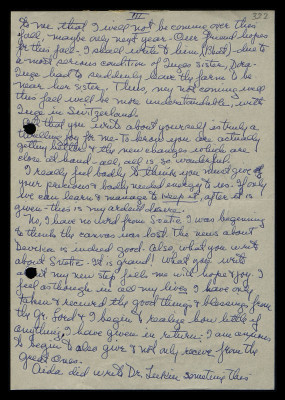 III 322
to me that I will not be coming over this
fall, maybe only next year. Our friend hopes
for this fall - I asked write to him (Bhati) due to
a most serious condition of Inga's sister,
Inge had to suddenly leave the farm to be
near her sister. Thus, my not coming until
this fall will be more understandable, with
Inge in Switzerland.
All that you write about yourself is truly a
thrilling joy for me - to know you are actually
getting better & the new changes which are
close at hand - all, all is so wonderful.
I really feel badly to think you must give of
your precious & badly needed energy to us. If only
we can learn & manage to keep it, after it is
given - this is my ardent desire.
No, I have no word from Svate. I was beginning
to think the canvas was lost. The news about
Devika is indeed good. Also, what you write
about Svate. It is grand! What you write
about my new step fills me with hope & joy. I
feel as though in all my lives I have only
taken & received the good things & blessings from
the Gr. Lord & I begin to realize how little of
anything I have given in return; I am anxious
to begin to also give & not only receive from the
great ones.
Aida did write Dr. Lukin sometime this